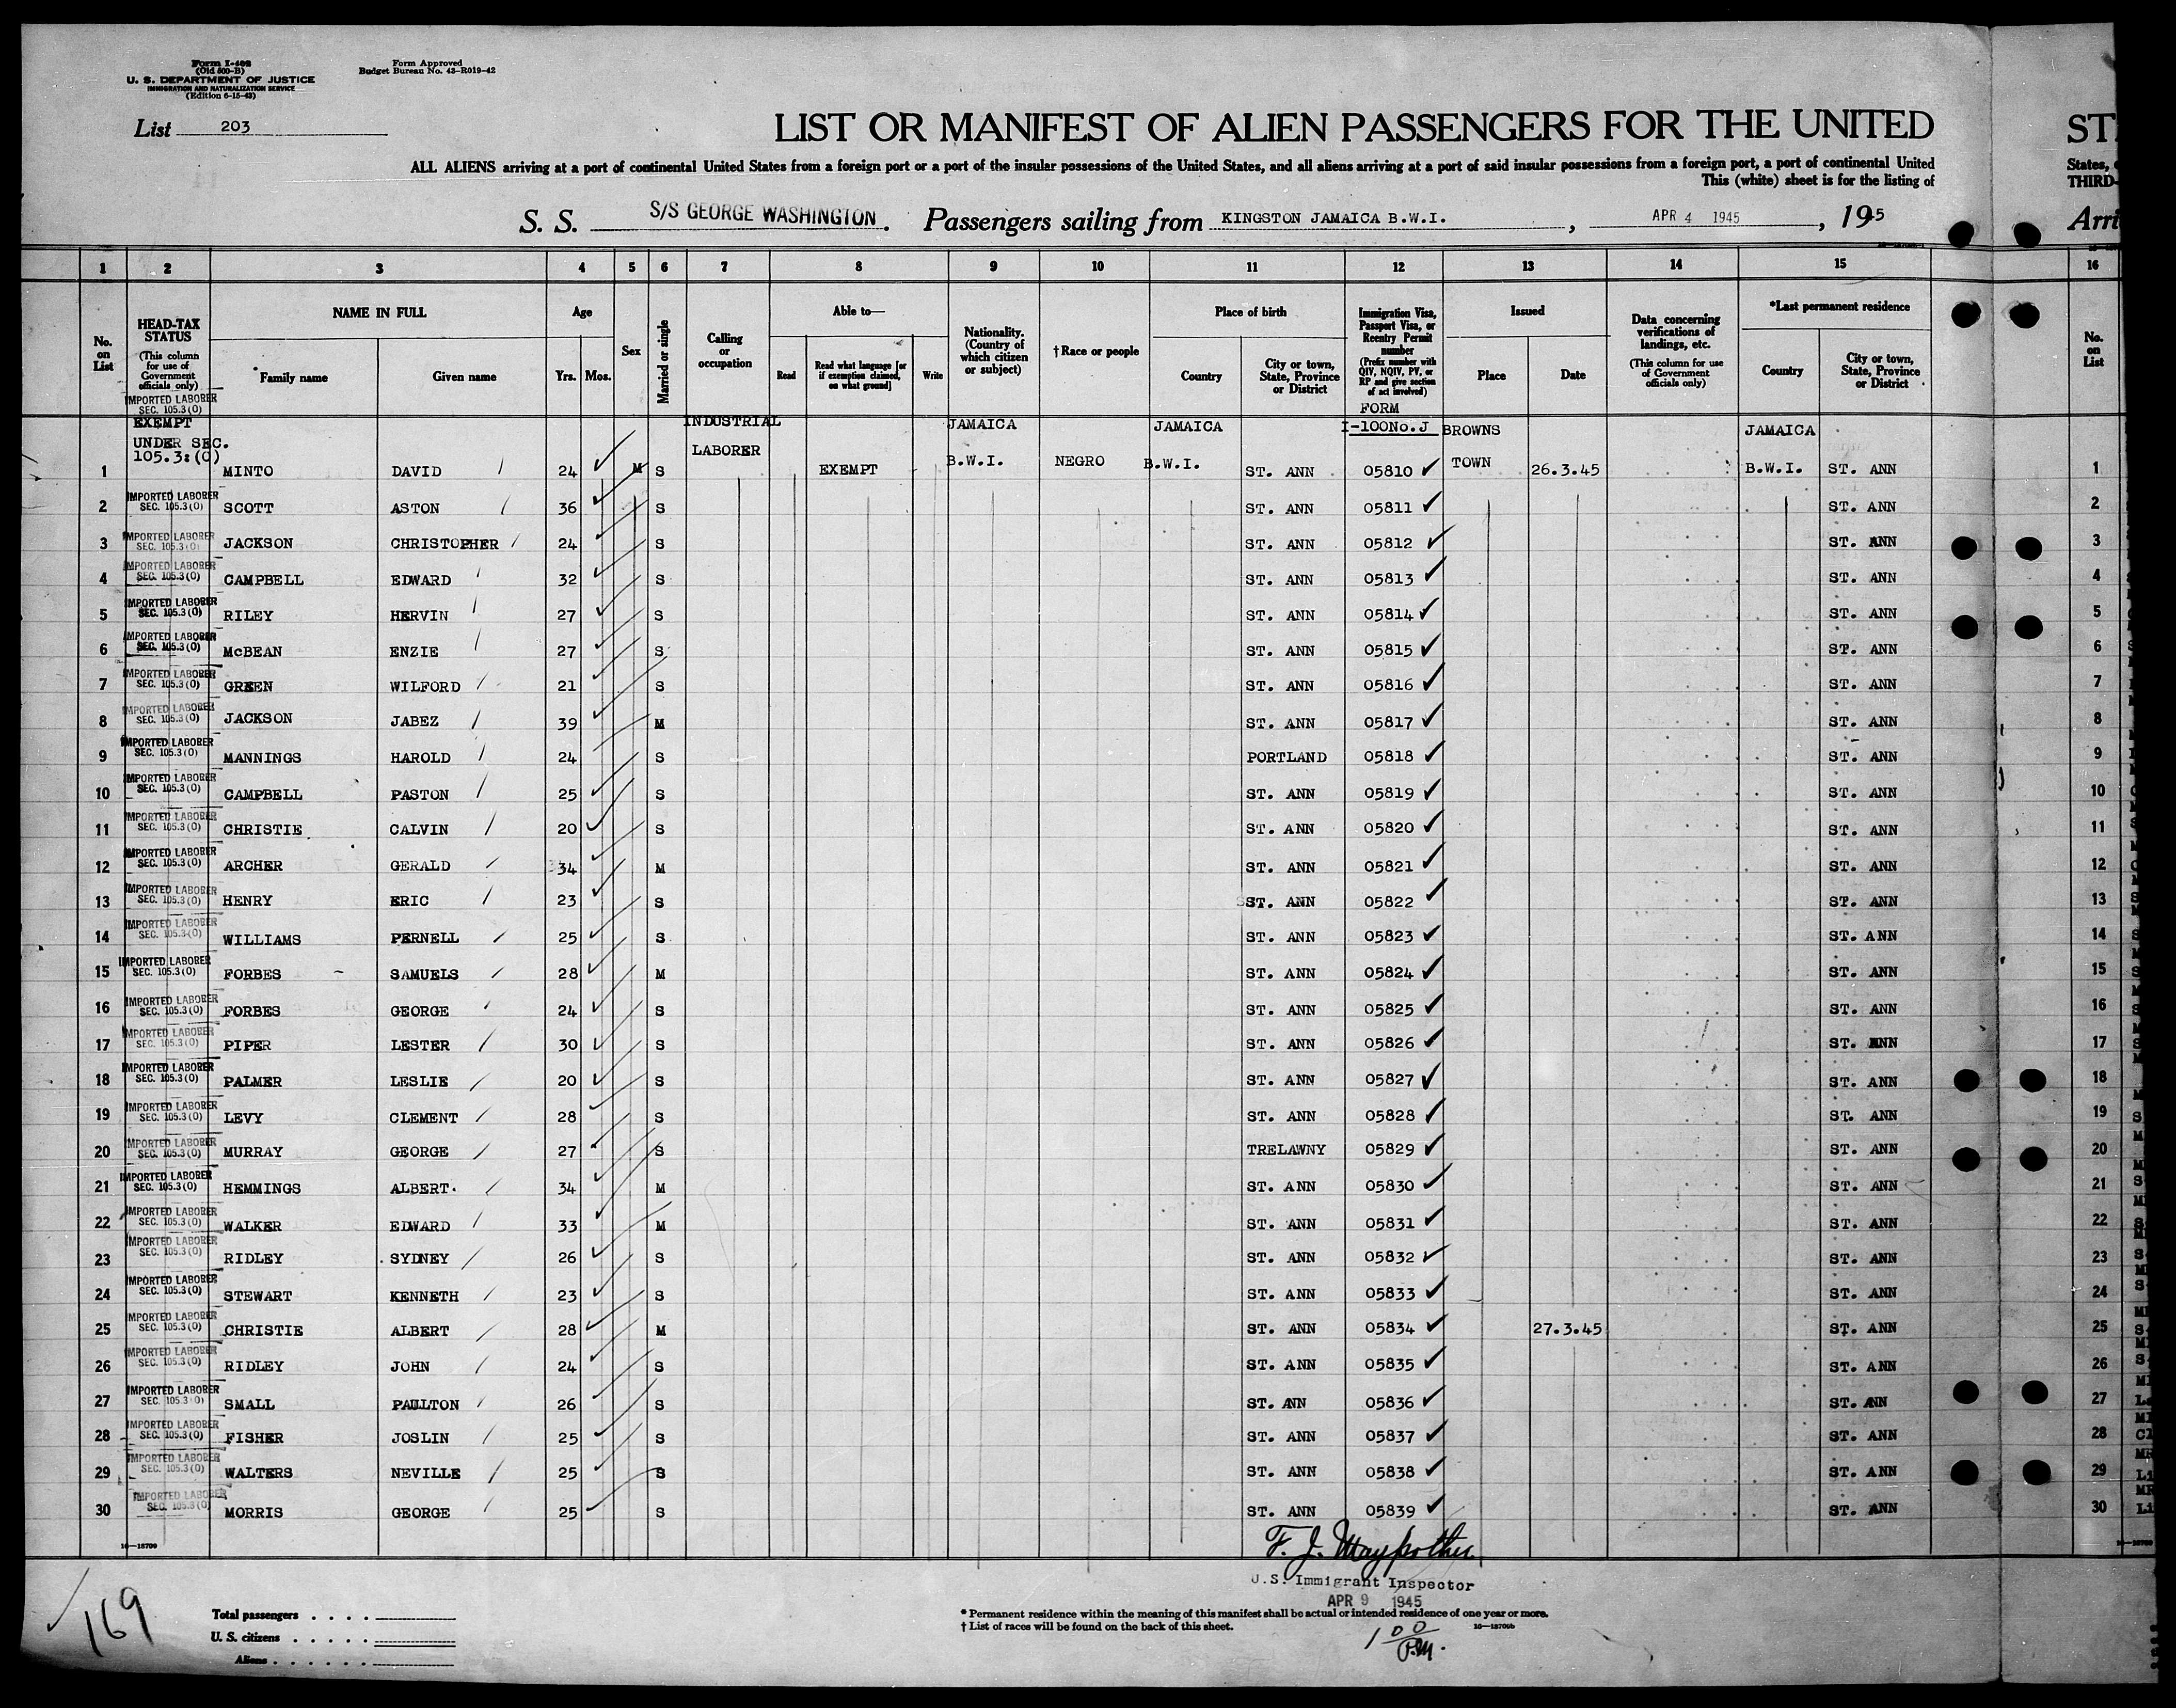 Form I-402
(Old 500-B)
U. S. DEPARTMENT OF JUSTICE
IMMIGRATION AND NATURALIZATION SERVICE
(Edition 6-15-43)
Form Approved
Budget Bureau No. 43-R019-42
List 203
LIST OR MANIFEST OF ALIEN PASSENGERS FOR THE UNITED
ALL ALIENS arriving at a port of continental United States from a foreign port or a port of the insular possessions of the United States, and all aliens arriving at a port of said insular possessions from a foreign port, a port of continental United
This (white) sheet is for the listing of
S. S. S/S GEORGE WASHINGTON. Passengers sailing from KINGSTON JAMAICA B.W.I., APR 4 1945, 1945
States,
THIRD-
Arri
1 2 3 4 5 6 7 8 9 10 11 12 13 14 15 16
No. on List
HEAD-TAX STATUS
(This column for use of Government officials only)
NAME IN FULL
Family name Given name
Age
Yrs. Mos.
Sex
Married or single
Calling or occupation
Able to—
Read Read what language [or if exemption claimed, on what ground] Write
Nationality. (Country of which citizen or subject)
†Race or people
Place of birth
Country City or town, State, Province or District
Immigration Visa, Passport Visa, or Reentry Permit number
(Prefix number with QIV, NQIV, PV, or RP and give section of act involved)
Issued
Place Date
Data concerning verifications of landings, etc.
(This column for use of Government officials only)
*Last permanent residence
Country City or town, State, Province or District
No. on List
IMPORTED LABORER SEC. 105.3(0)
FORM
EXEMPT INDUSTRIAL JAMAICA JAMAICA I-100No.J BROWNS JAMAICA
UNDER SEC. LABORER
105.3:(0)
1 MINTO DAVID 24 M S EXEMPT B.W.I. NEGRO B.W.I. ST. ANN 05810 TOWN 26.3.45 B.W.I. ST. ANN 1
2 IMPORTED LABORER SEC. 105.3(0) SCOTT ASTON 36 S ST. ANN 05811 ST. ANN 2
3 IMPORTED LABORER SEC. 105.3(0) JACKSON CHRISTOPHER 24 S ST. ANN 05812 ST. ANN 3
4 IMPORTED LABORER SEC. 105.3(0) CAMPBELL EDWARD 32 S ST. ANN 05813 ST. ANN 4
5 IMPORTED LABORER SEC. 105.3(0) RILEY HERVIN 27 S ST. ANN 05814 ST. ANN 5
6 IMPORTED LABORER SEC. 105.3(0) McBEAN ENZIE 27 S ST. ANN 05815 ST. ANN 6
7 IMPORTED LABORER SEC. 105.3(0) GREEN WILFORD 21 S ST. ANN 05816 ST. ANN 7
8 IMPORTED LABORER SEC. 105.3(0) JACKSON JABEZ 39 M ST. ANN 05817 ST. ANN 8
9 IMPORTED LABORER SEC. 105.3(0) MANNINGS HAROLD 24 S PORTLAND 05818 ST. ANN 9
10 IMPORTED LABORER SEC. 105.3(0) CAMPBELL PASTON 25 S ST. ANN 05819 ST. ANN 10
11 IMPORTED LABORER SEC. 105.3(0) CHRISTIE CALVIN 20 S ST. ANN 05820 ST. ANN 11
12 IMPORTED LABORER SEC. 105.3(0) ARCHER GERALD 34 M ST. ANN 05821 ST. ANN 12
13 IMPORTED LABORER SEC. 105.3(0) HENRY ERIC 23 S ST. ANN 05822 ST. ANN 13
14 IMPORTED LABORER SEC. 105.3(0) WILLIAMS PERNELL 25 S ST. ANN 05823 ST. ANN 14
15 IMPORTED LABORER SEC. 105.3(0) FORBES SAMUELS 28 M ST. ANN 05824 ST. ANN 15
16 IMPORTED LABORER SEC. 105.3(0) FORBES GEORGE 24 S ST. ANN 05825 ST. ANN 16
17 IMPORTED LABORER SEC. 105.3(0) PIPER LESTER 30 S ST. ANN 05826 ST. ANN 17
18 IMPORTED LABORER SEC. 105.3(0) PALMER LESLIE 20 S ST. ANN 05827 ST. ANN 18
19 IMPORTED LABORER SEC. 105.3(0) LEVY CLEMENT 28 S ST. ANN 05828 ST. ANN 19
20 IMPORTED LABORER SEC. 105.3(0) MURRAY GEORGE 27 S TRELAWNY 05829 ST. ANN 20
21 IMPORTED LABORER SEC. 105.3(0) HEMMINGS ALBERT. 34 M ST. ANN 05830 ST. ANN 21
22 IMPORTED LABORER SEC. 105.3(0) WALKER EDWARD 33 M ST. ANN 05831 ST. ANN 22
23 IMPORTED LABORER SEC. 105.3(0) RIDLEY SYDNEY 26 S ST. ANN 05832 ST. ANN 23
24 IMPORTED LABORER SEC. 105.3(0) STEWART KENNETH 23 S ST. ANN 05833 ST. ANN 24
25 IMPORTED LABORER SEC. 105.3(0) CHRISTIE ALBERT 28 M ST. ANN 05834 27.3.45 ST. ANN 25
26 IMPORTED LABORER SEC. 105.3(0) RIDLEY JOHN 24 S ST. ANN 05835 ST. ANN 26
27 IMPORTED LABORER SEC. 105.3(0) SMALL PAULTON 26 S ST. ANN 05836 ST. ANN 27
28 IMPORTED LABORER SEC. 105.3(0) FISHER JOSLIN 25 S ST. ANN 05837 ST. ANN 28
29 IMPORTED LABORER SEC. 105.3(0) WALTERS NEVILLE 25 S ST. ANN 05838 ST. ANN 29
30 IMPORTED LABORER SEC. 105.3(0) MORRIS GEORGE 25 S ST. ANN 05839 ST. ANN 30
16—18709
F. J. Maypother
U.S. Immigrant Inspector
APR 9 1945
169
Total passengers
U. S. citizens
Aliens
* Permanent residence within the meaning of this manifest shall be actual or intended residence of one year or more.
† List of races will be found on the back of this sheet.
16—18709b
1 00 P.M.